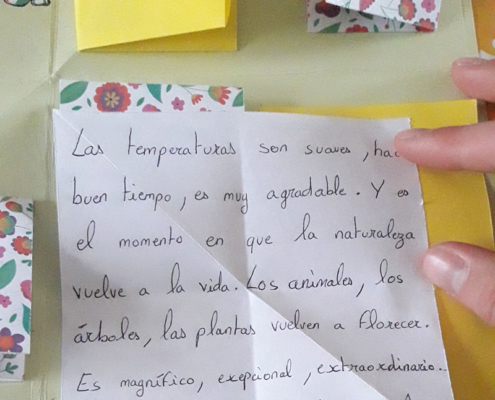 Las temperaturas son suaves, hac
buen tiempo, es muy agradable. Y es
el momento en que la naturaleza
vuelve a la vida. Los animales, los
árboles, las plantas vuelven a florecer.
Es magnífico, exepcional, extraordinario.